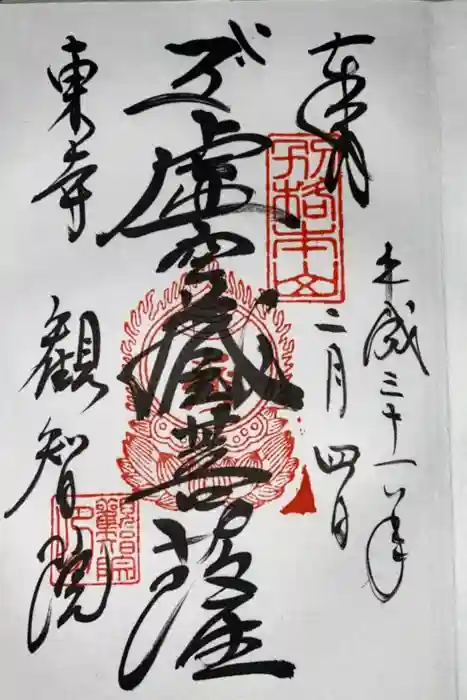 奉拝
別格本山
平成三十一年
二月四日
虚空蔵菩薩
東寺
観智院